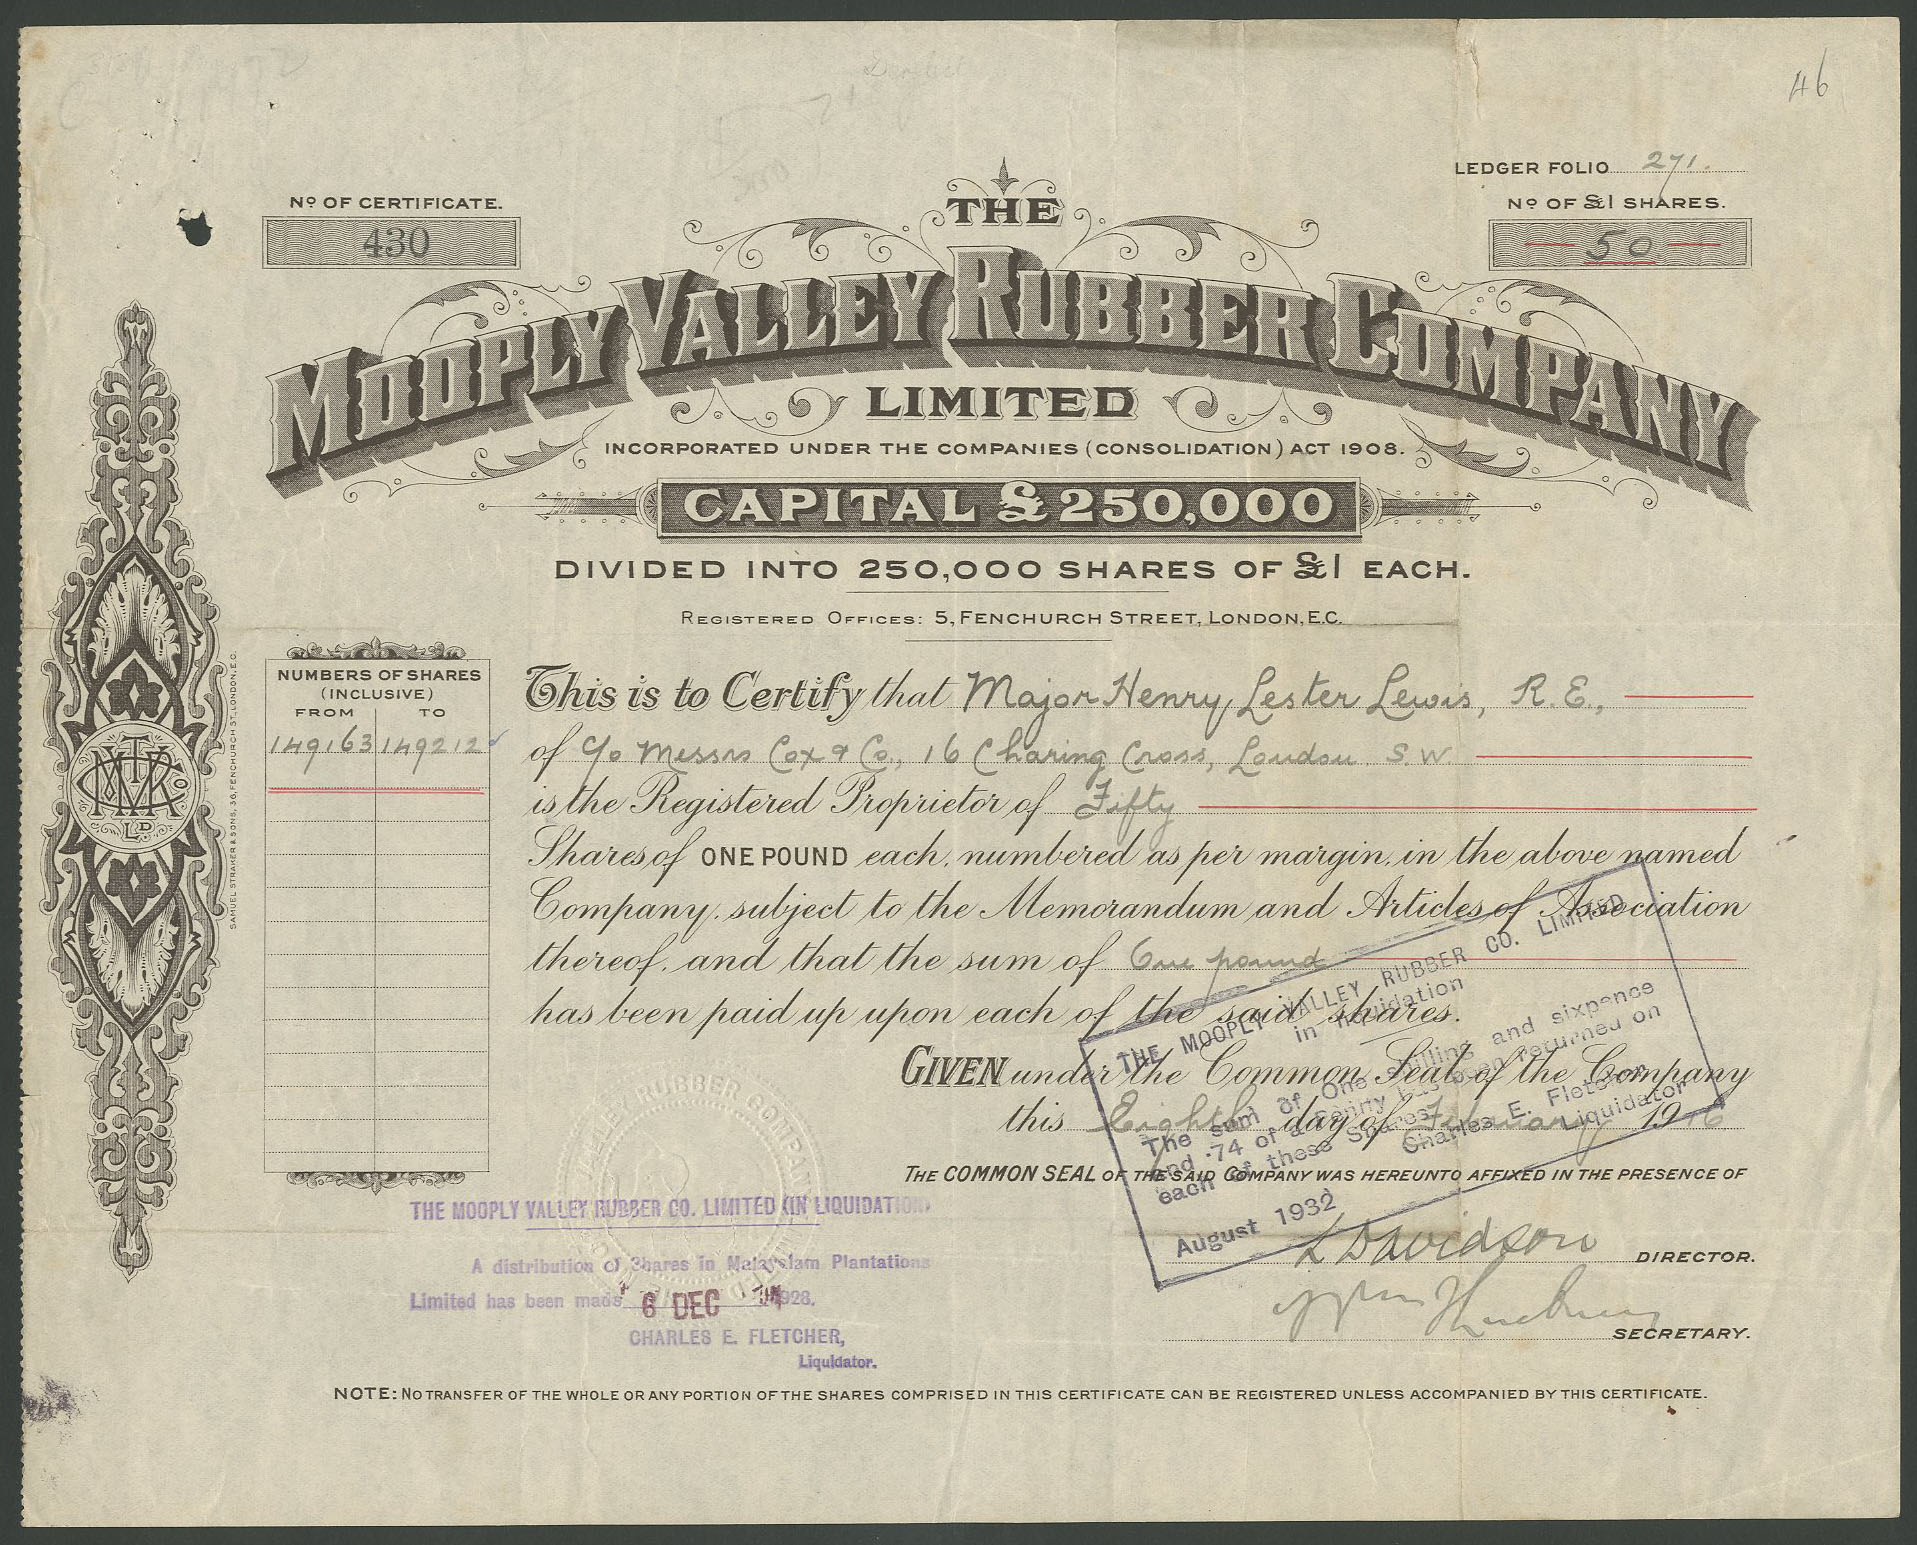 46
LEDGER FOLIO 271.
Nº OF CERTIFICATE.
430
Nº OF £1 SHARES.
50
THE
MOOPLY VALLEY RUBBER COMPANY
LIMITED
INCORPORATED UNDER THE COMPANIES (CONSOLIDATION) ACT 1908.
CAPITAL £250,000
DIVIDED INTO 250,000 SHARES OF £1 EACH.
REGISTERED OFFICES: 5, FENCHURCH STREET, LONDON, E.C.
NUMBERS OF SHARES
(INCLUSIVE)
FROM TO
149163 149212
SAMUEL STRAKER & SONS, 36, FENCHURCH ST. LONDON, E.C.
LD
This is to Certify that Major Henry Lester Lewis, R.E.,
of c/o Messrs Cox & Co., 16 Charing Cross, London S.W.
is the Registered Proprietor of Fifty
Shares of ONE POUND each, numbered as per margin, in the above named
Company, subject to the Memorandum and Articles of Association
thereof, and that the sum of One pound
has been paid up upon each of the said shares.
GIVEN under the Common Seal of the Company
this Eighth day of February 1916
THE COMMON SEAL OF THE SAID COMPANY WAS HEREUNTO AFFIXED IN THE PRESENCE OF
L Davidson DIRECTOR.
SECRETARY.
THE MOOPLY VALLEY RUBBER CO. LIMITED
in liquidation
The sum of One shilling and sixpence
and .74 of a penny has been returned on
each of these Shares
Charles E. Fletcher
Liquidator
August 1932
VALLEY RUBBER COMPANY
THE MOOPLY VALLEY RUBBER CO. LIMITED (IN LIQUIDATION)
A distribution of Shares in Malayslam Plantations
Limited has been made 6 DEC 1928.
CHARLES E. FLETCHER,
Liquidator.
NOTE: NO TRANSFER OF THE WHOLE OR ANY PORTION OF THE SHARES COMPRISED IN THIS CERTIFICATE CAN BE REGISTERED UNLESS ACCOMPANIED BY THIS CERTIFICATE.